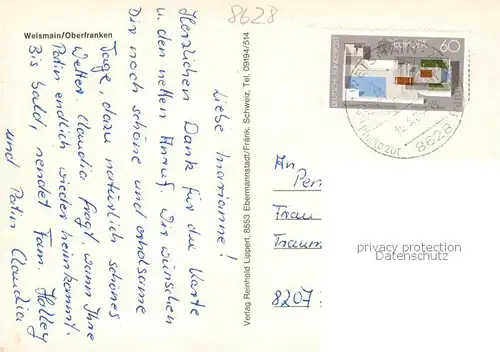 8628
Weismain/Oberfranken
Liebe Marianne!
Herzlichen Dank für die Karte
u. den netten Anruf. Wir wünschen
Dir noch schöne und erholsame
Tage, dazu natürlich schönes
Wetter. Claudia fragt, wann Ihre
Patin endlich wieder heimkommt.
Bis bald, sendet Fam. Holley
und Patin Claudia
Verlag Reinhold Lippert, 8553 Ebermannstadt/Fränk. Schweiz, Tel. 09194/514
DEUTSCHE BUNDESPOST
EUROPA
60
Pforte zur
8628
An
Frau
8207
privacy protection
Datenschutz